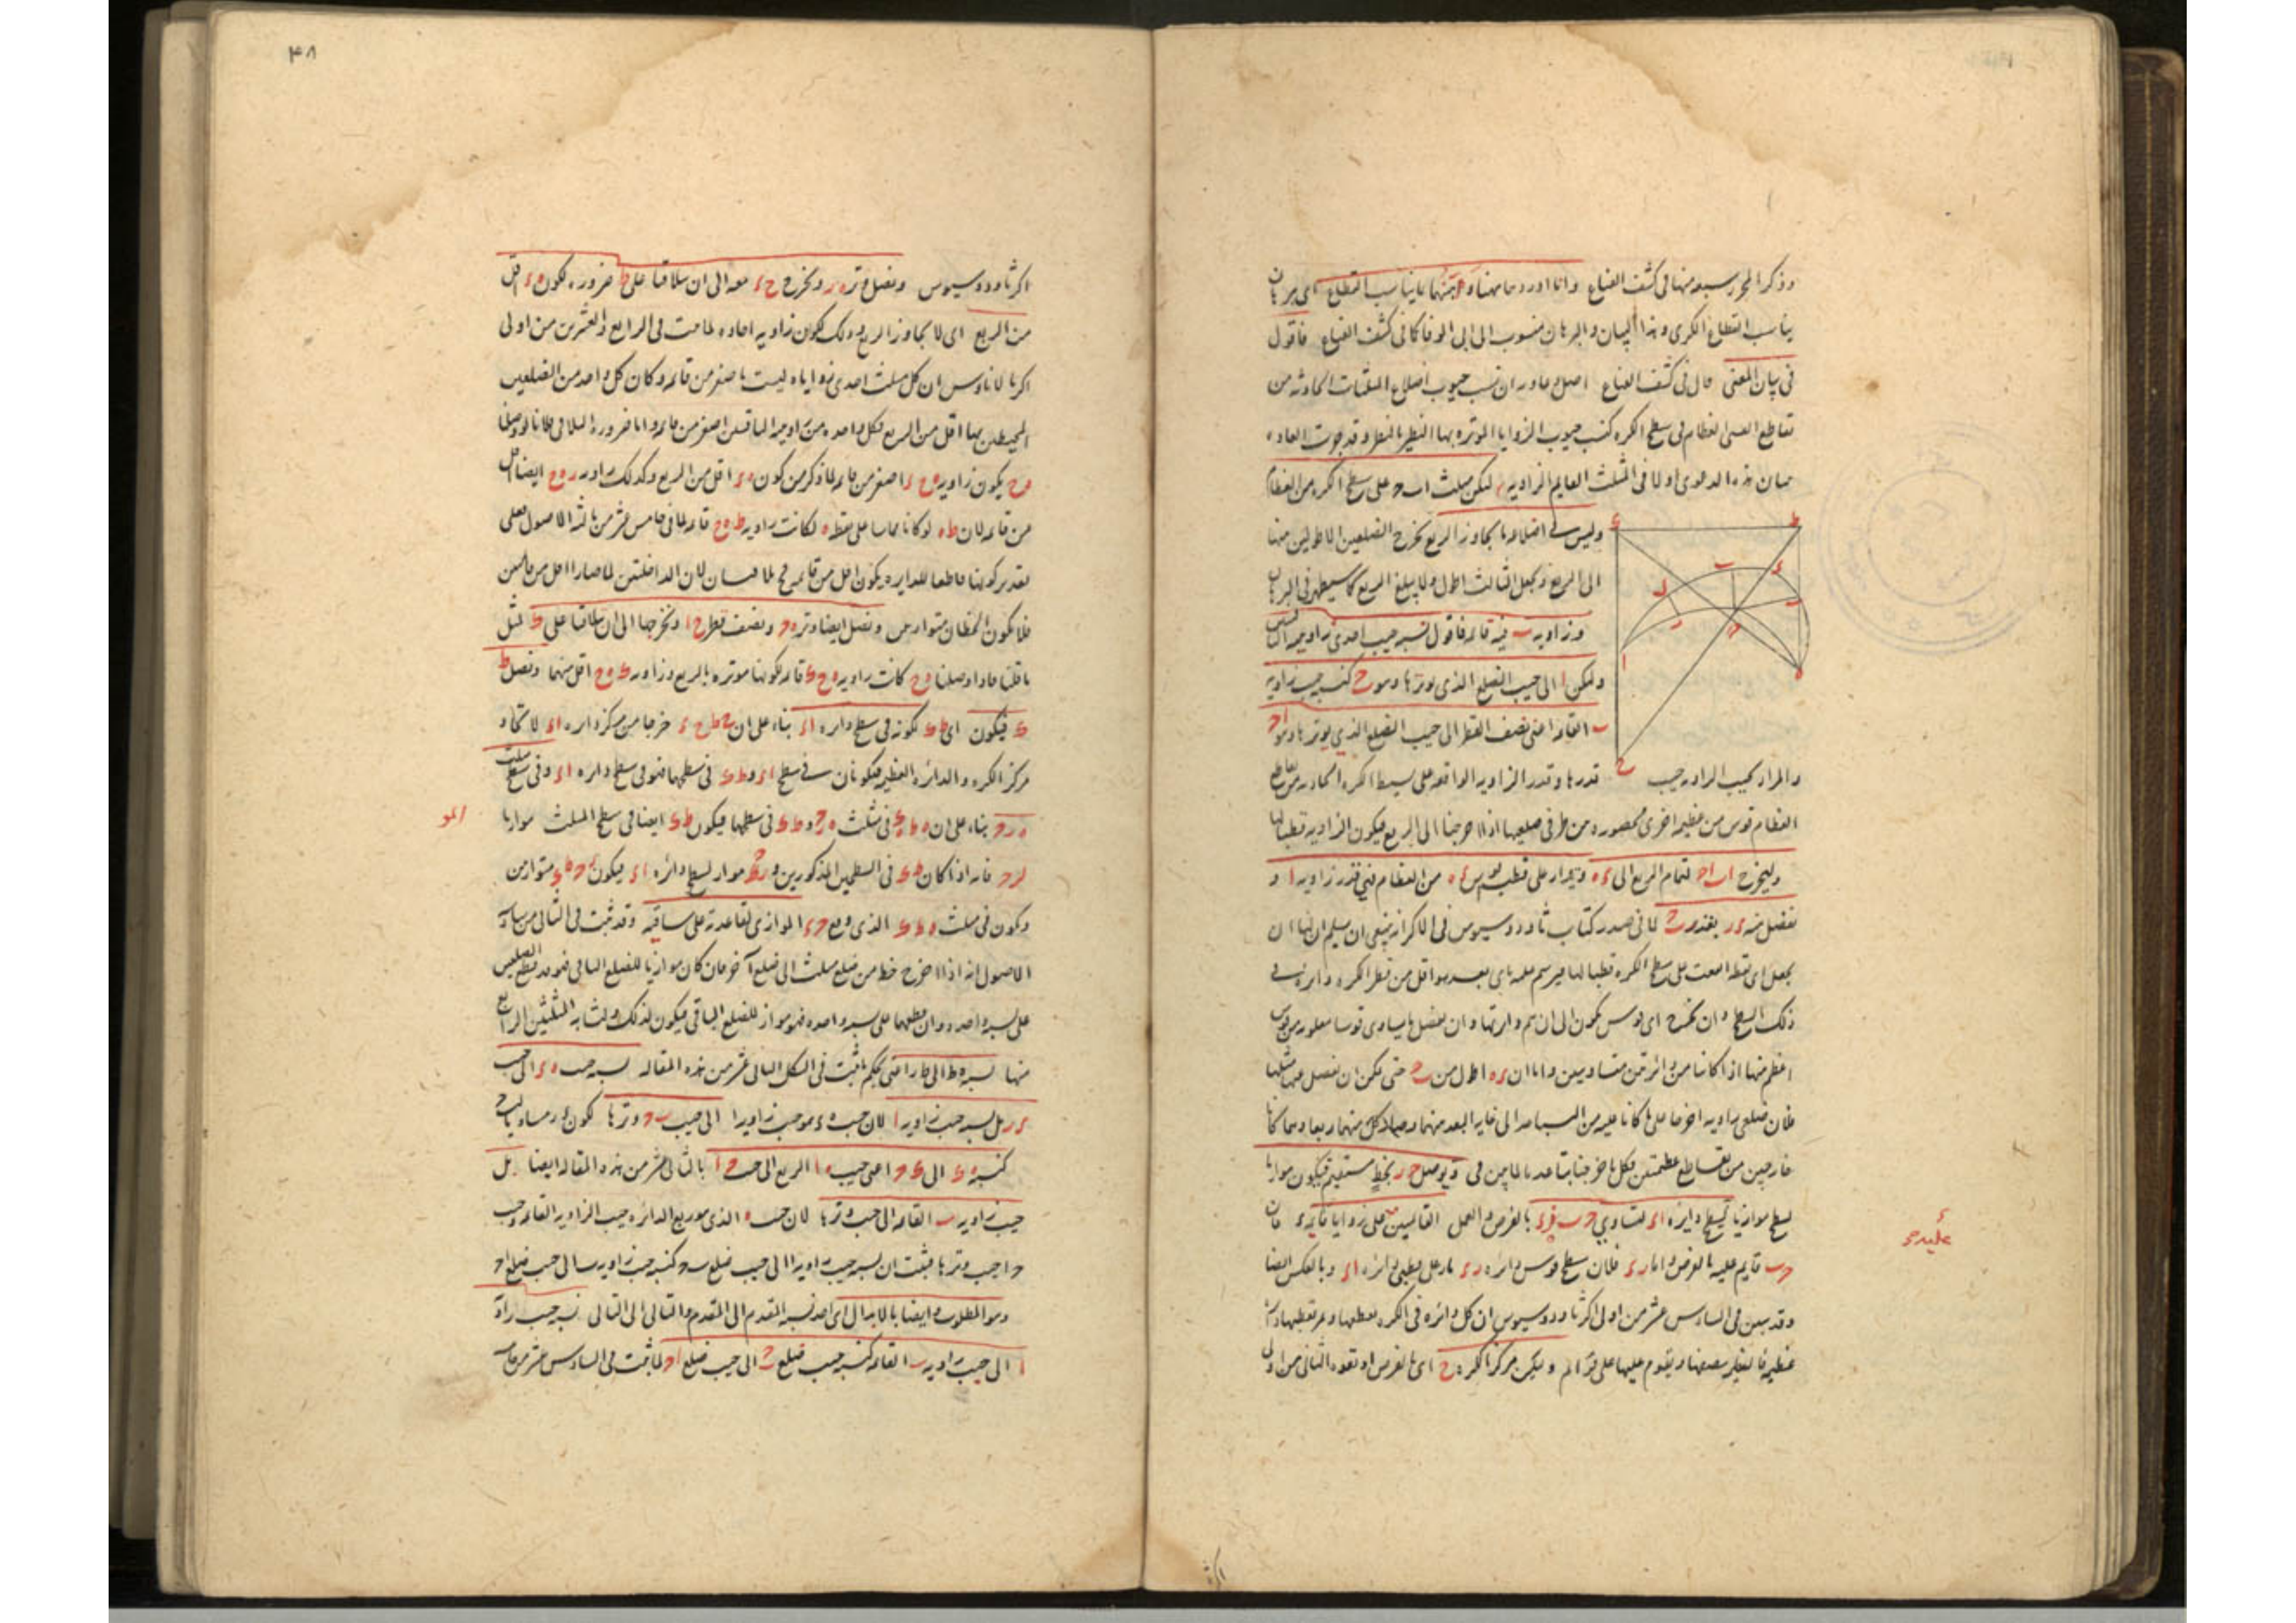 وذكر المحرر سبعه منها فى كشف القناع وانا اورد هاهنا ما يناسب القطاع اى برهان
يناسب القطاع الكرى وهذا البيان والبرهان منسوب الى ابى الوفا كما فى كشف القناع فاقول
فى بيان المعنى قال فى كشف القناع اصل دعاويه ان نسب جيوب اضلاع المثلثات الحادثه من
تقاطع القسى العظام فى سطح الكره كنسب جيوب الزوايا الموتره بها النظير للنظير وقد جرت العاده
ببيان هذه الدعوى اولا فى المثلث القايم الزاويه ليكن مثلث ا ب ح على سطح الكره من العظام
وليس فى اضلاعه ما يجاوز الربع نخرج الضلعين الاطولين منها
الى الربع ونجعل الثالث اطول ولا يبلغ الربع كما سيظهر فى البرهان
وزاويه ب منه قائمه فاقول نسبه جيب احدى زاويتيه
ولتكن ا الى جيب الضلع الذى يوترها وهو ب ح كنسبه جيب زاويه
ب القائمه اعنى نصف القطر الى جيب الضلع الذى يوترها وهو ا ح
والمراد بجيب الزاويه جيب قدرها وقدر الزاويه الواقعه على بسيط الكره الحادثه من تقاطع
العظام قوس من عظيمه اخرى محصوره من طرفى ضلعيها اذا اخرجا الى الربع فيكون الزاويه قطبا لها
وليخرج ا ب ا ح لتمام الربع الى ء ه ويدار على قطب ا قوس ء ه من العظام فهى قدر زاويه ا و
نفصل منه ء ر بقدر ب ح لما فى صدر كتاب ثاودوسيوس فى الاكر انه ينبغى ان يسلم ان لنا ان
نجعل اى نقطه وقعت على سطح الكره قطبا لدايره نرسم عليه باى بعد هو اقل من قطر الكره دايره فى
ذلك السطح وان نخرج اى قوس يكون الى ان يتم دايرتها وان نفصل ما يساوى قوسا معلومه من قوس
اعظم منها اذا كانتا من دائرتين متساويتين واما ان ء ه اطول من ب ح حتى يمكن ان نفصل منها مثلها
فلان ضلعى زاويه اخرجا على ما كانا عليه من التباعد الى غايه البعد منهما وصار كل منهما ربعا وهما كانا
خارجين من تقاطع عظيمتين فكل ما خرجتا تباعدتا لما بين فى ونوصل ح ر بخط مستقيم فيكون موازيا
لسطح موازيا لسطح دايره ا ء لتساوى ح ب ر ء بالفرض والعمل القائمين على زوايا قائمه فان
ح ب قايم عليه بالفرض واما ر ء فلان سطح قوس دايره ر ء مار على قطبى دائره ا ء وبالعكس ايضا
وقد تبين فى السادس عشر من اولى اكر ثاودوسيوس ان كل دائره فى الكره تقطعها وتمر بقطبيها دايره
عظيمه فانها تقطعها بنصفين وتقوم عليها على قوائم وليكن مركز الكره ح اى بالفرض او بقوه الثانى من اولى
عليه ح ء
اكر ثا
٤٨
اكر ثاودوسيوس ونصل وتر ه ر ونخرج ح ء معه الى ان يتلاقيا على ط ضروره لكون ه ء اقل
من الربع اى لا يجاوز الربع وذلك لكون زاويه ا حاده لما ثبت فى الرابع والعشرين من اولى
اكر مانالاوس ان كل مثلث احدى زواياه ليست باصغر من قائمه وكان كل واحد من الضلعين
المحيطين بها اقل من الربع فكل واحده من زاويتيه الباقيتين اصغر من قائمه واما ضروره التلاقى فلانا لو وصلنا
ه ح يكون زاويه ه ح ء اصغر من قائمه لما ذكر من كون ه ء اقل من الربع وكذلك زاويه ر ه ح ايضا اقل
من قائمه لان ط ه لو كان مماسا على نقطه ه لكانت زاويه ط ه ح قائمه لما فى خامس عشر من ثالثه الاصول فعلى
تقدير كونها قاطعا للدايره يكون اقل من قائمه فيتلاقيان لان الداخلتين لما صارا اقل من قائمتين
فلا يكون الخطان متوازيين ونصل ايضا وتر ه ح ونصف قطر ح ا ونخرجهما الى ان يتلاقيا على ك لمثل
ما قلنا فاذا وصلنا ه ح كانت زاويه ه ح ك قائمه لكونها موتره بالربع وزاويه ك ه ح اقل منها ونصل ط
ك فيكون اى ط ك لكونه فى سطح دايره ا ء بناء على ان ح ط ح ء خرجا من مركز دايره ا ء لاتحاد
مركز الكره والدائره العظيمه فيكونان فى سطح ا ء و ط ك فى سطحهما فهو فى سطح دائره ا ء وفى سطح مثلث
ه ر ح بناء على ان ه ط ه ك فى مثلث ه ر ح و ط ك فى سطحهما فيكون ط ك ايضا فى سطح المثلث موازيا
لر ح فانه اذا كان ط ك فى السطحين المذكورين و ر ح مواز لسطح دائره ا ء فيكون ر ح ط ك متوازيين
ويكون فى مثلث ه ط ك الذى وقع ر ح الموازى لقاعدته على ساقيه وقد ثبت فى الثانى من سادسه
الاصول انه اذا اخرج خط من ضلع مثلث الى ضلع آخر فان كان موازيا للضلع الباقى فهو قد قطع الضلعين
على نسبه واحده وان قطعهما على نسبه واحده فهو مواز للضلع الباقى فيكون لذلك ولتشابه المثلثين الرابع
منها نسبه ه ط الى ط ر اعنى بحكم ما ثبت فى الشكل الثانى عشر من هذه المقاله نسبه جيب ه ء الى جيب
ء ر بل نسبه جيب زاويه ا لان جيب ه ء هو جيب زاويه ا الى جيب ب ح وترها لكون ء ر مساويا لب ح
كنسبه ه ك الى ك ح اعنى جيب ه ا الربع الى جيب ح ا بالثانى عشر من هذه المقاله ايضا بل
جيب زاويه ب القائمه الى جيب وترها لان جيب ه ا الذى هو ربع الدائره جيب الزاويه القائمه وجيب
ح ا جيب وترها فثبت ان نسبه جيب زاويه ا الى جيب ضلع ب ح كنسبه جيب زاويه ب الى جيب ضلع ا ح
وهو المطلوب وايضا بالابدال اى اخذ نسبه المقدم الى المقدم والتالى الى التالى نسبه جيب زاويه
ا الى جيب زاويه ب القائمه كنسبه جيب ضلع ب ح الى جيب ضلع ا ح لما ثبت فى السادس عشر من خامسه